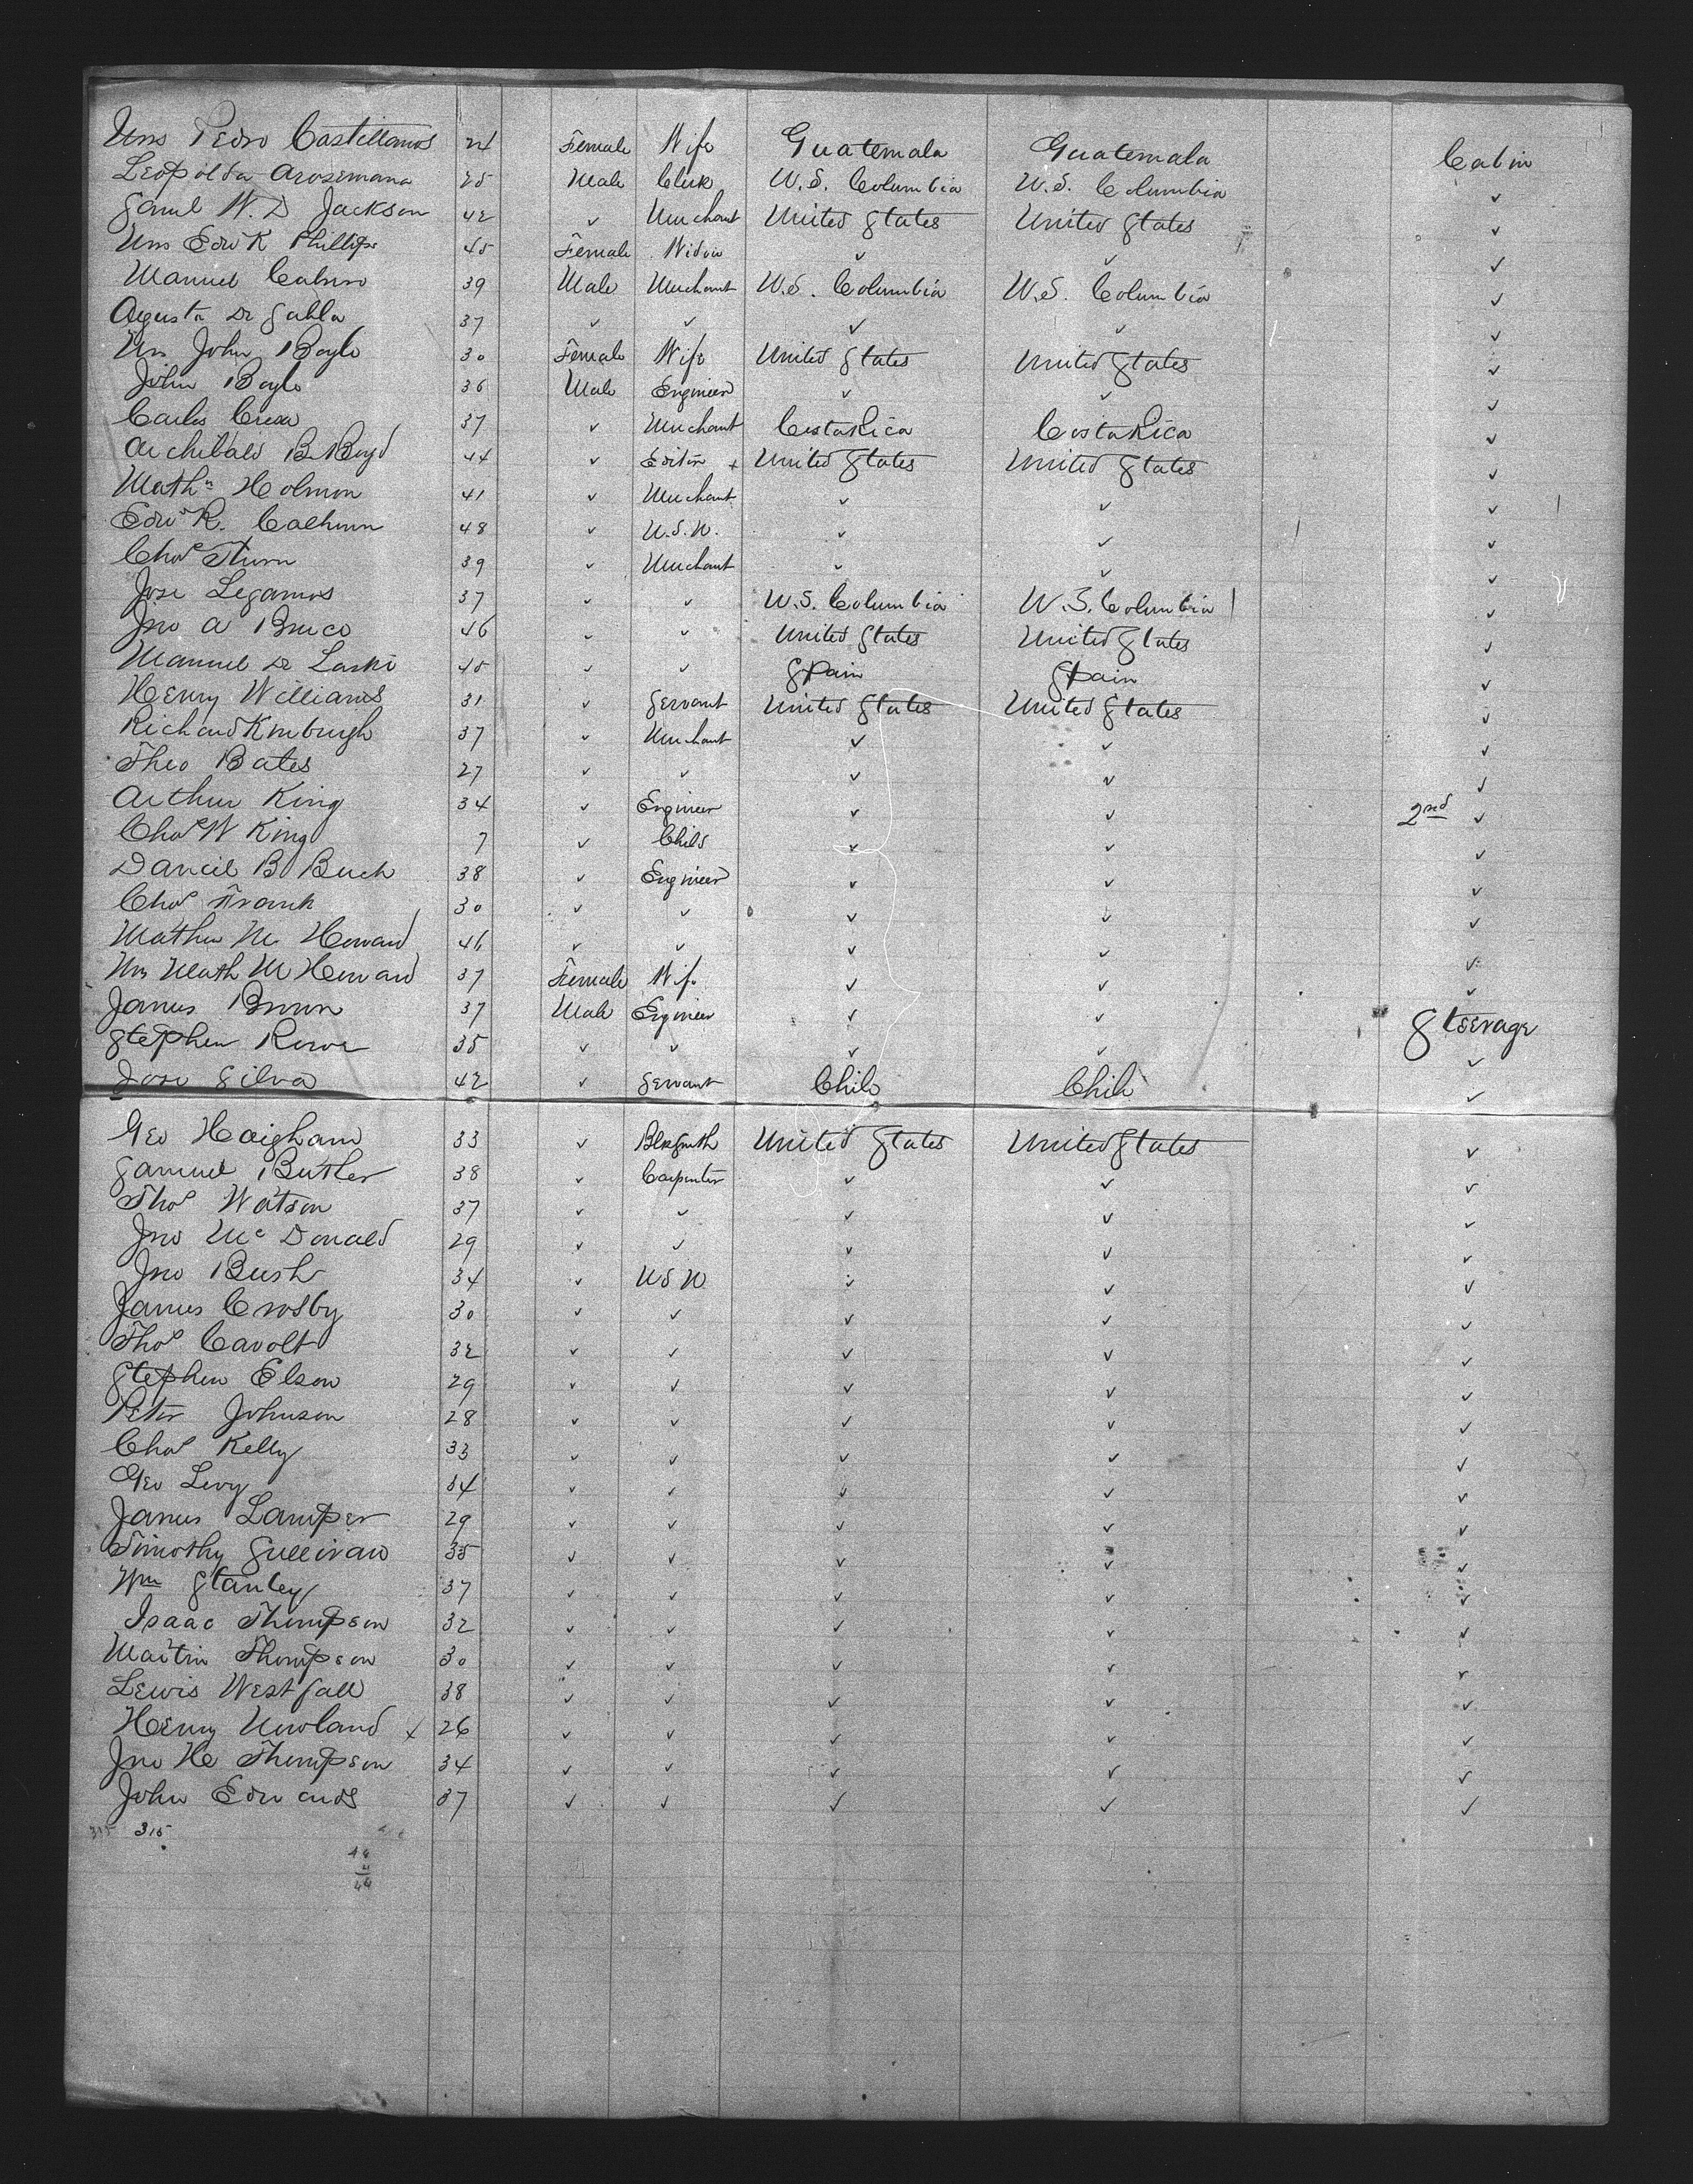 Mrs Pedro Castillanos 24 Female Wife Guatemala Guatemala Cabin
Leopolda Arosemana 25 Male Clerk U.S. Columbia U.S. Columbia ✓
Saml W. D Jackson 42 ✓ Merchant United States United States ✓
Mrs Edw K Phillips 45 Female Widow ✓ ✓ ✓
Manuel 39 Male Merchant U.S. Columbia U.S. Columbia ✓
Agusta De Sabla 37 ✓ ✓ ✓ ✓ ✓
Mrs John Boyle 30 Female Wife United States United States ✓
John Boyle 36 Male Engineer ✓ ✓ ✓
Carlos 37 ✓ Merchant CostaRica CostaRica ✓
Archibald B. Boyd 44 ✓ Editor + United States United States ✓
Mathw Holmon 41 ✓ Merchant ✓ ✓ ✓
Edw R. Calhoun 48 ✓ U.S.N. ✓ ✓ ✓
Chas Thurn 39 ✓ Merchant ✓ ✓ ✓
Jose Legamos 37 ✓ ✓ U.S. Columbia U.S. Columbia ✓
Jno A Bruce 46 ✓ ✓ United States United States ✓
Manuel De Laski 45 ✓ ✓ Spain Spain ✓
Henry Williams 31 ✓ Servant United States United States ✓
Richard Kinburgh 37 ✓ Merchant ✓ ✓ ✓
Theo Bates 27 ✓ ✓ ✓ ✓ ✓
Arthur King 34 ✓ Engineer ✓ ✓ 2nd ✓
Chas W King 7 ✓ Child ✓ ✓ ✓
Daniel B Buch 38 ✓ Engineer ✓ ✓ ✓
Chas Frank 30 ✓ ✓ ✓ ✓ ✓
Mathew M Howard 46 ✓ ✓ ✓ ✓ ✓
Mrs Math M Howard 37 Female Wife ✓ ✓ ✓
James Brown 37 Male Engineer ✓ ✓ Steerage
Stephen Rowe 35 ✓ ✓ ✓ ✓ ✓
Jose Silva 42 ✓ Servant Chile Chili ✓
Geo Haigham 33 ✓ Blksmith United States United States ✓
Samuel Butler 38 ✓ Carpenter ✓ ✓ ✓
Thos Watson 37 ✓ ✓ ✓ ✓ ✓
Jno McDonald 29 ✓ ✓ ✓ ✓ ✓
Jno Bush 34 ✓ U S N ✓ ✓ ✓
James Crosby 30 ✓ ✓ ✓ ✓ ✓
Thos Cavolt 32 ✓ ✓ ✓ ✓ ✓
Stephen Elson 29 ✓ ✓ ✓ ✓ ✓
Peter Johnson 28 ✓ ✓ ✓ ✓ ✓
Chas Kelly 33 ✓ ✓ ✓ ✓ ✓
Geo Levy 34 ✓ ✓ ✓ ✓ ✓
James Lamper 29 ✓ ✓ ✓ ✓ ✓
Timothy Sullivan 35 ✓ ✓ ✓ ✓ ✓
Wm Stanley 37 ✓ ✓ ✓ ✓ ✓
Isaac Thompson 32 ✓ ✓ ✓ ✓ ✓
Martin Thompson 30 ✓ ✓ ✓ ✓ ✓
Lewis Westfall 38 ✓ ✓ ✓ ✓ ✓
Henry Newland x 26 ✓ ✓ ✓ ✓ ✓
Jno H Thompson 34 ✓ ✓ ✓ ✓ ✓
John Edwards 37 ✓ ✓ ✓ ✓ ✓
315 315